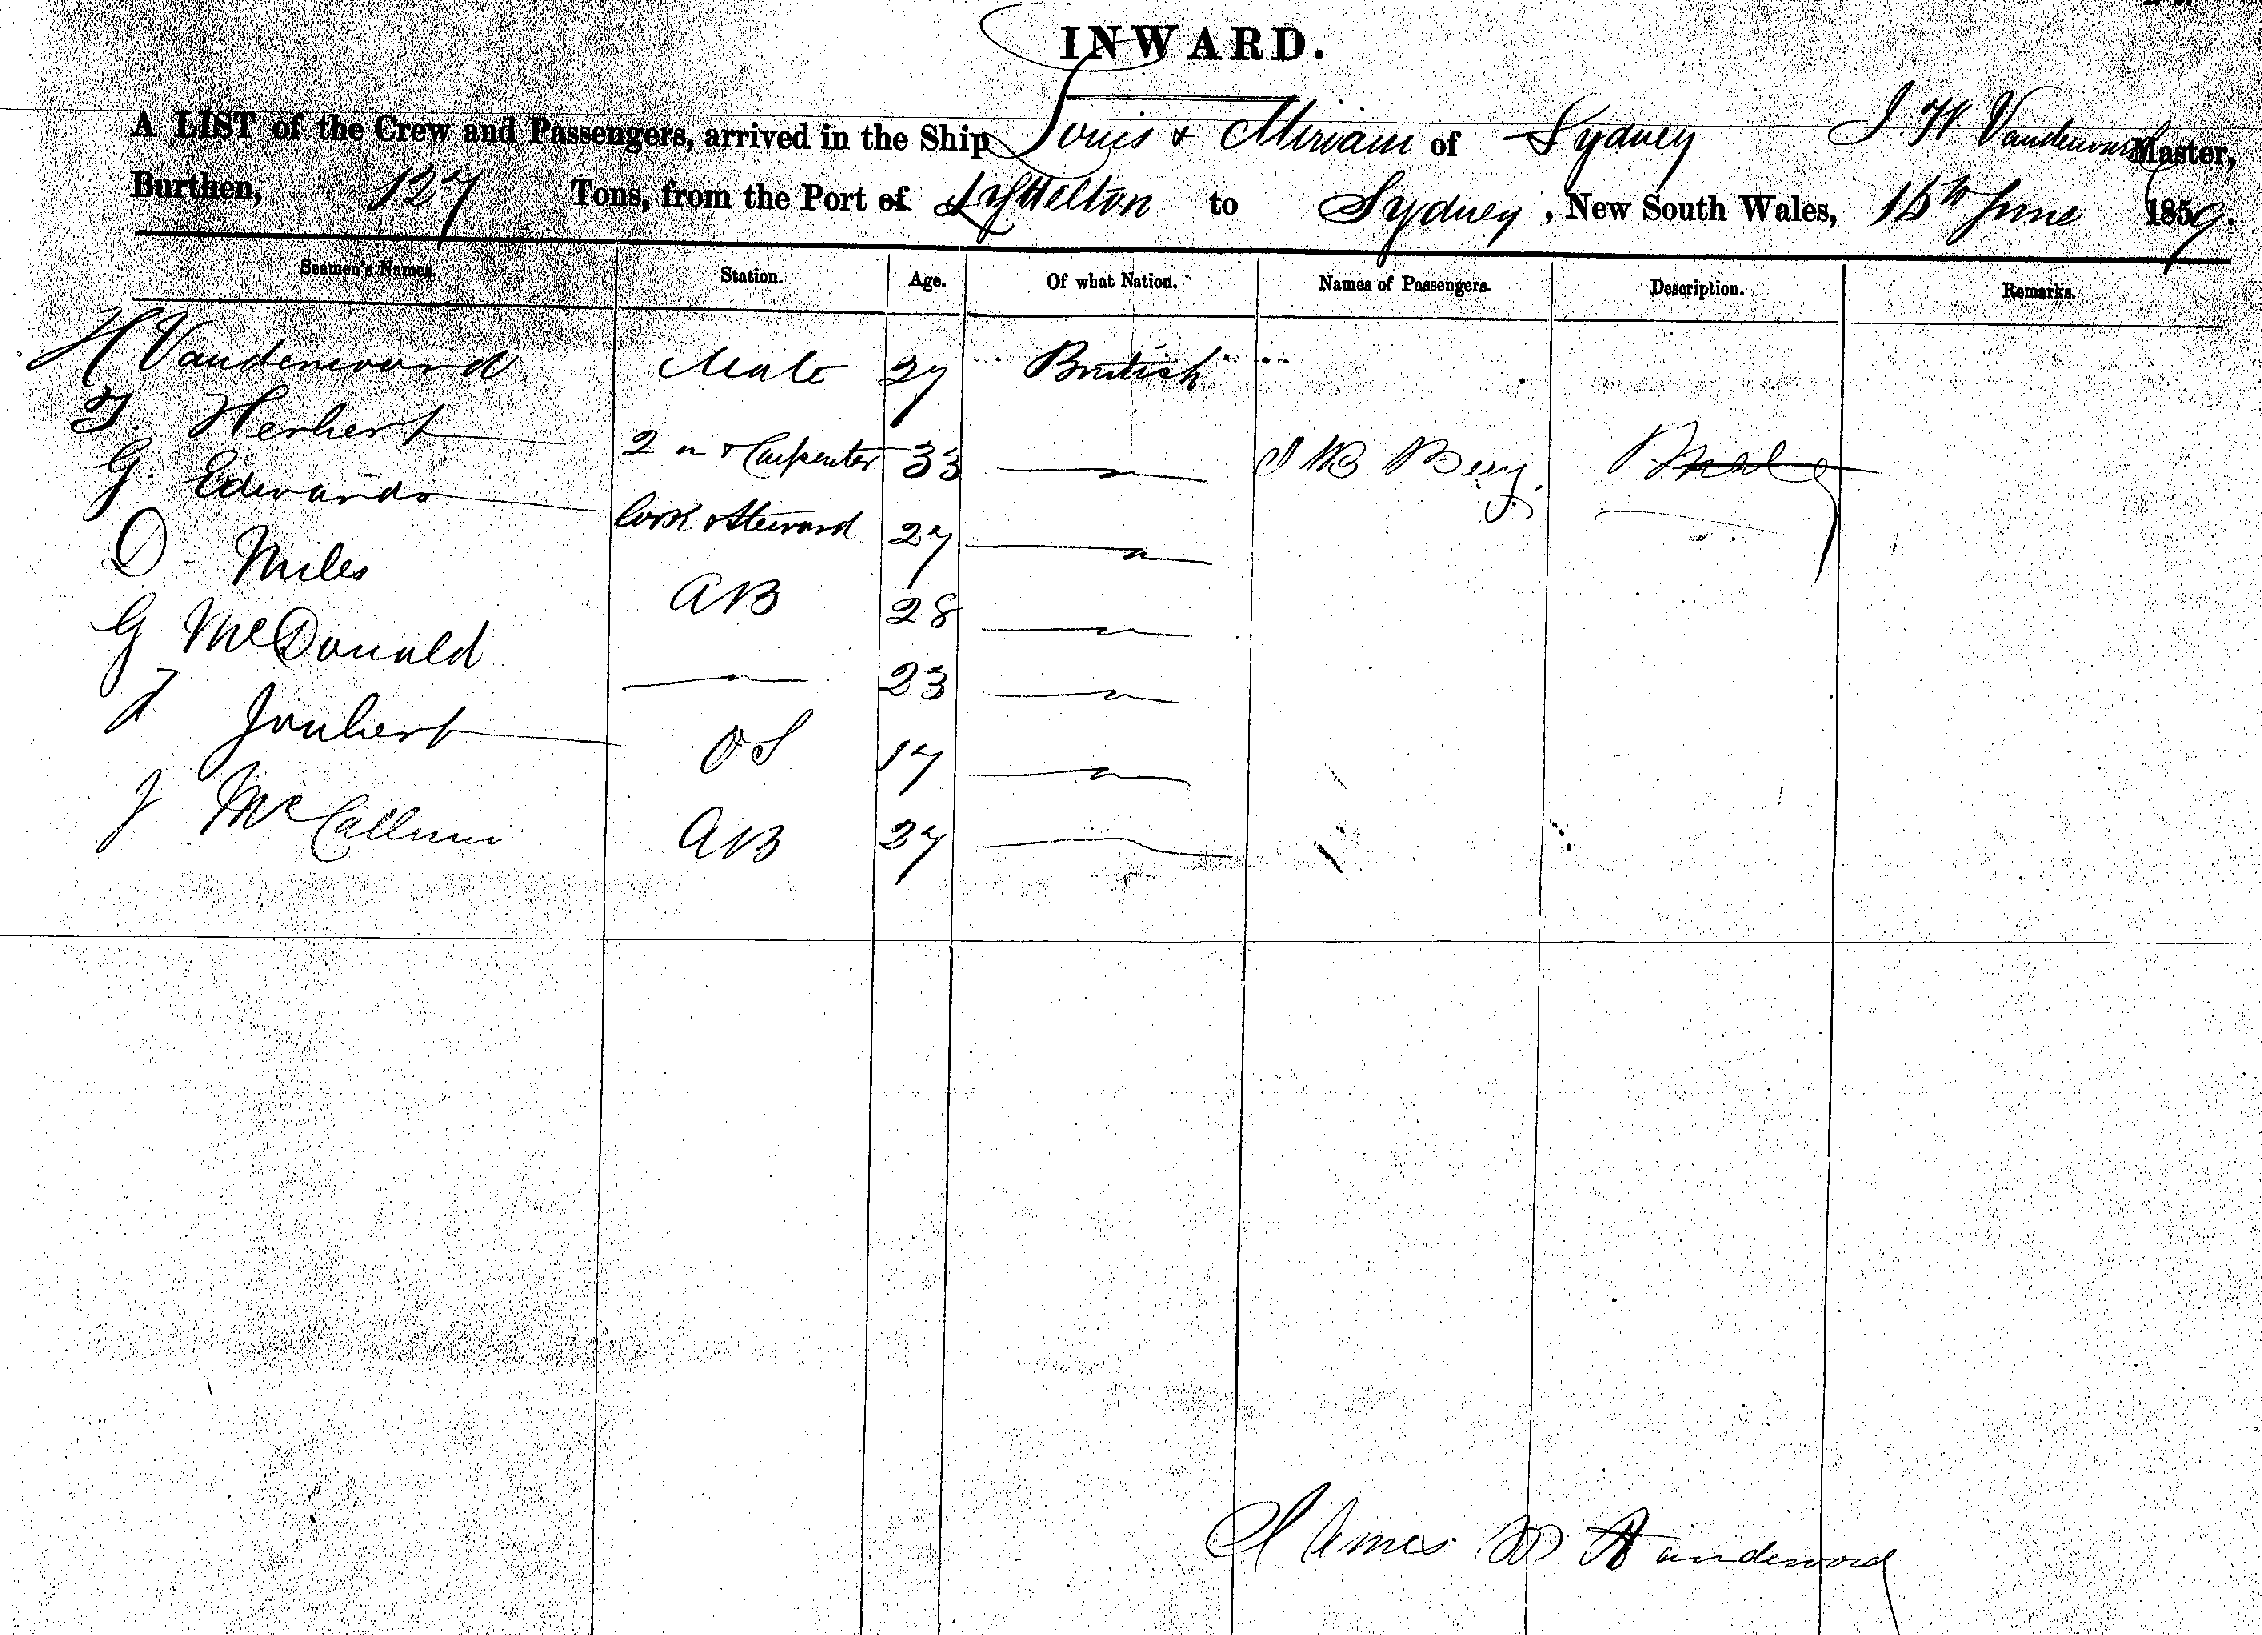 INWARD.
A LIST of the Crew and Passengers, arrived in the Ship Louis & Miriam of Sydney J W Vandervord Master,
Burthen, 127 Tons, from the Port of Lyttelton to Sydney, New South Wales, 16th June 1859.
Seamen's Names. Station. Age. Of what Nation. Names of Passengers. Description. Remarks.
H Vandervord Mate 27 British
T. Herbert 2 m & Carpenter 33 — " —
G Edwards Cook & Steward 27 — " —
O Miles AB 28 — " —
G McDonald — " — 23 — " —
J Joubert OS 17 — " —
J McCallum AB 27
J W Berry
James W Vandervord